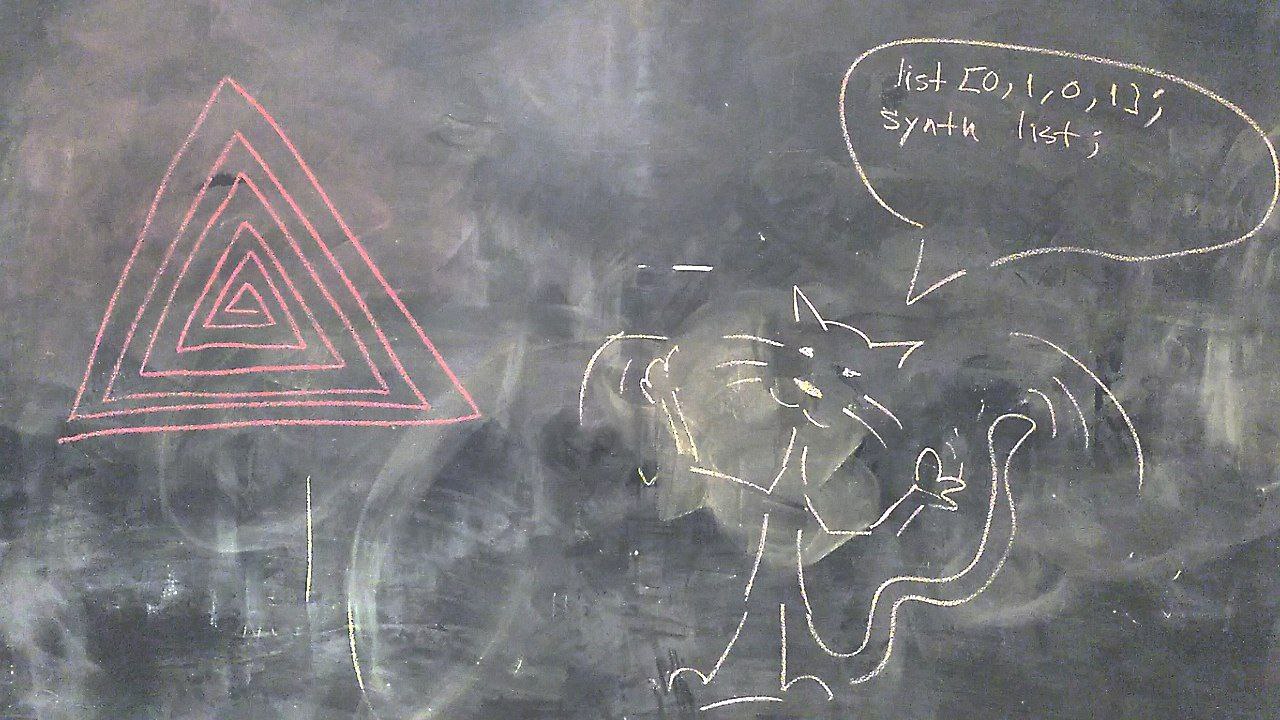 list [0,1,0,1];
synth list;